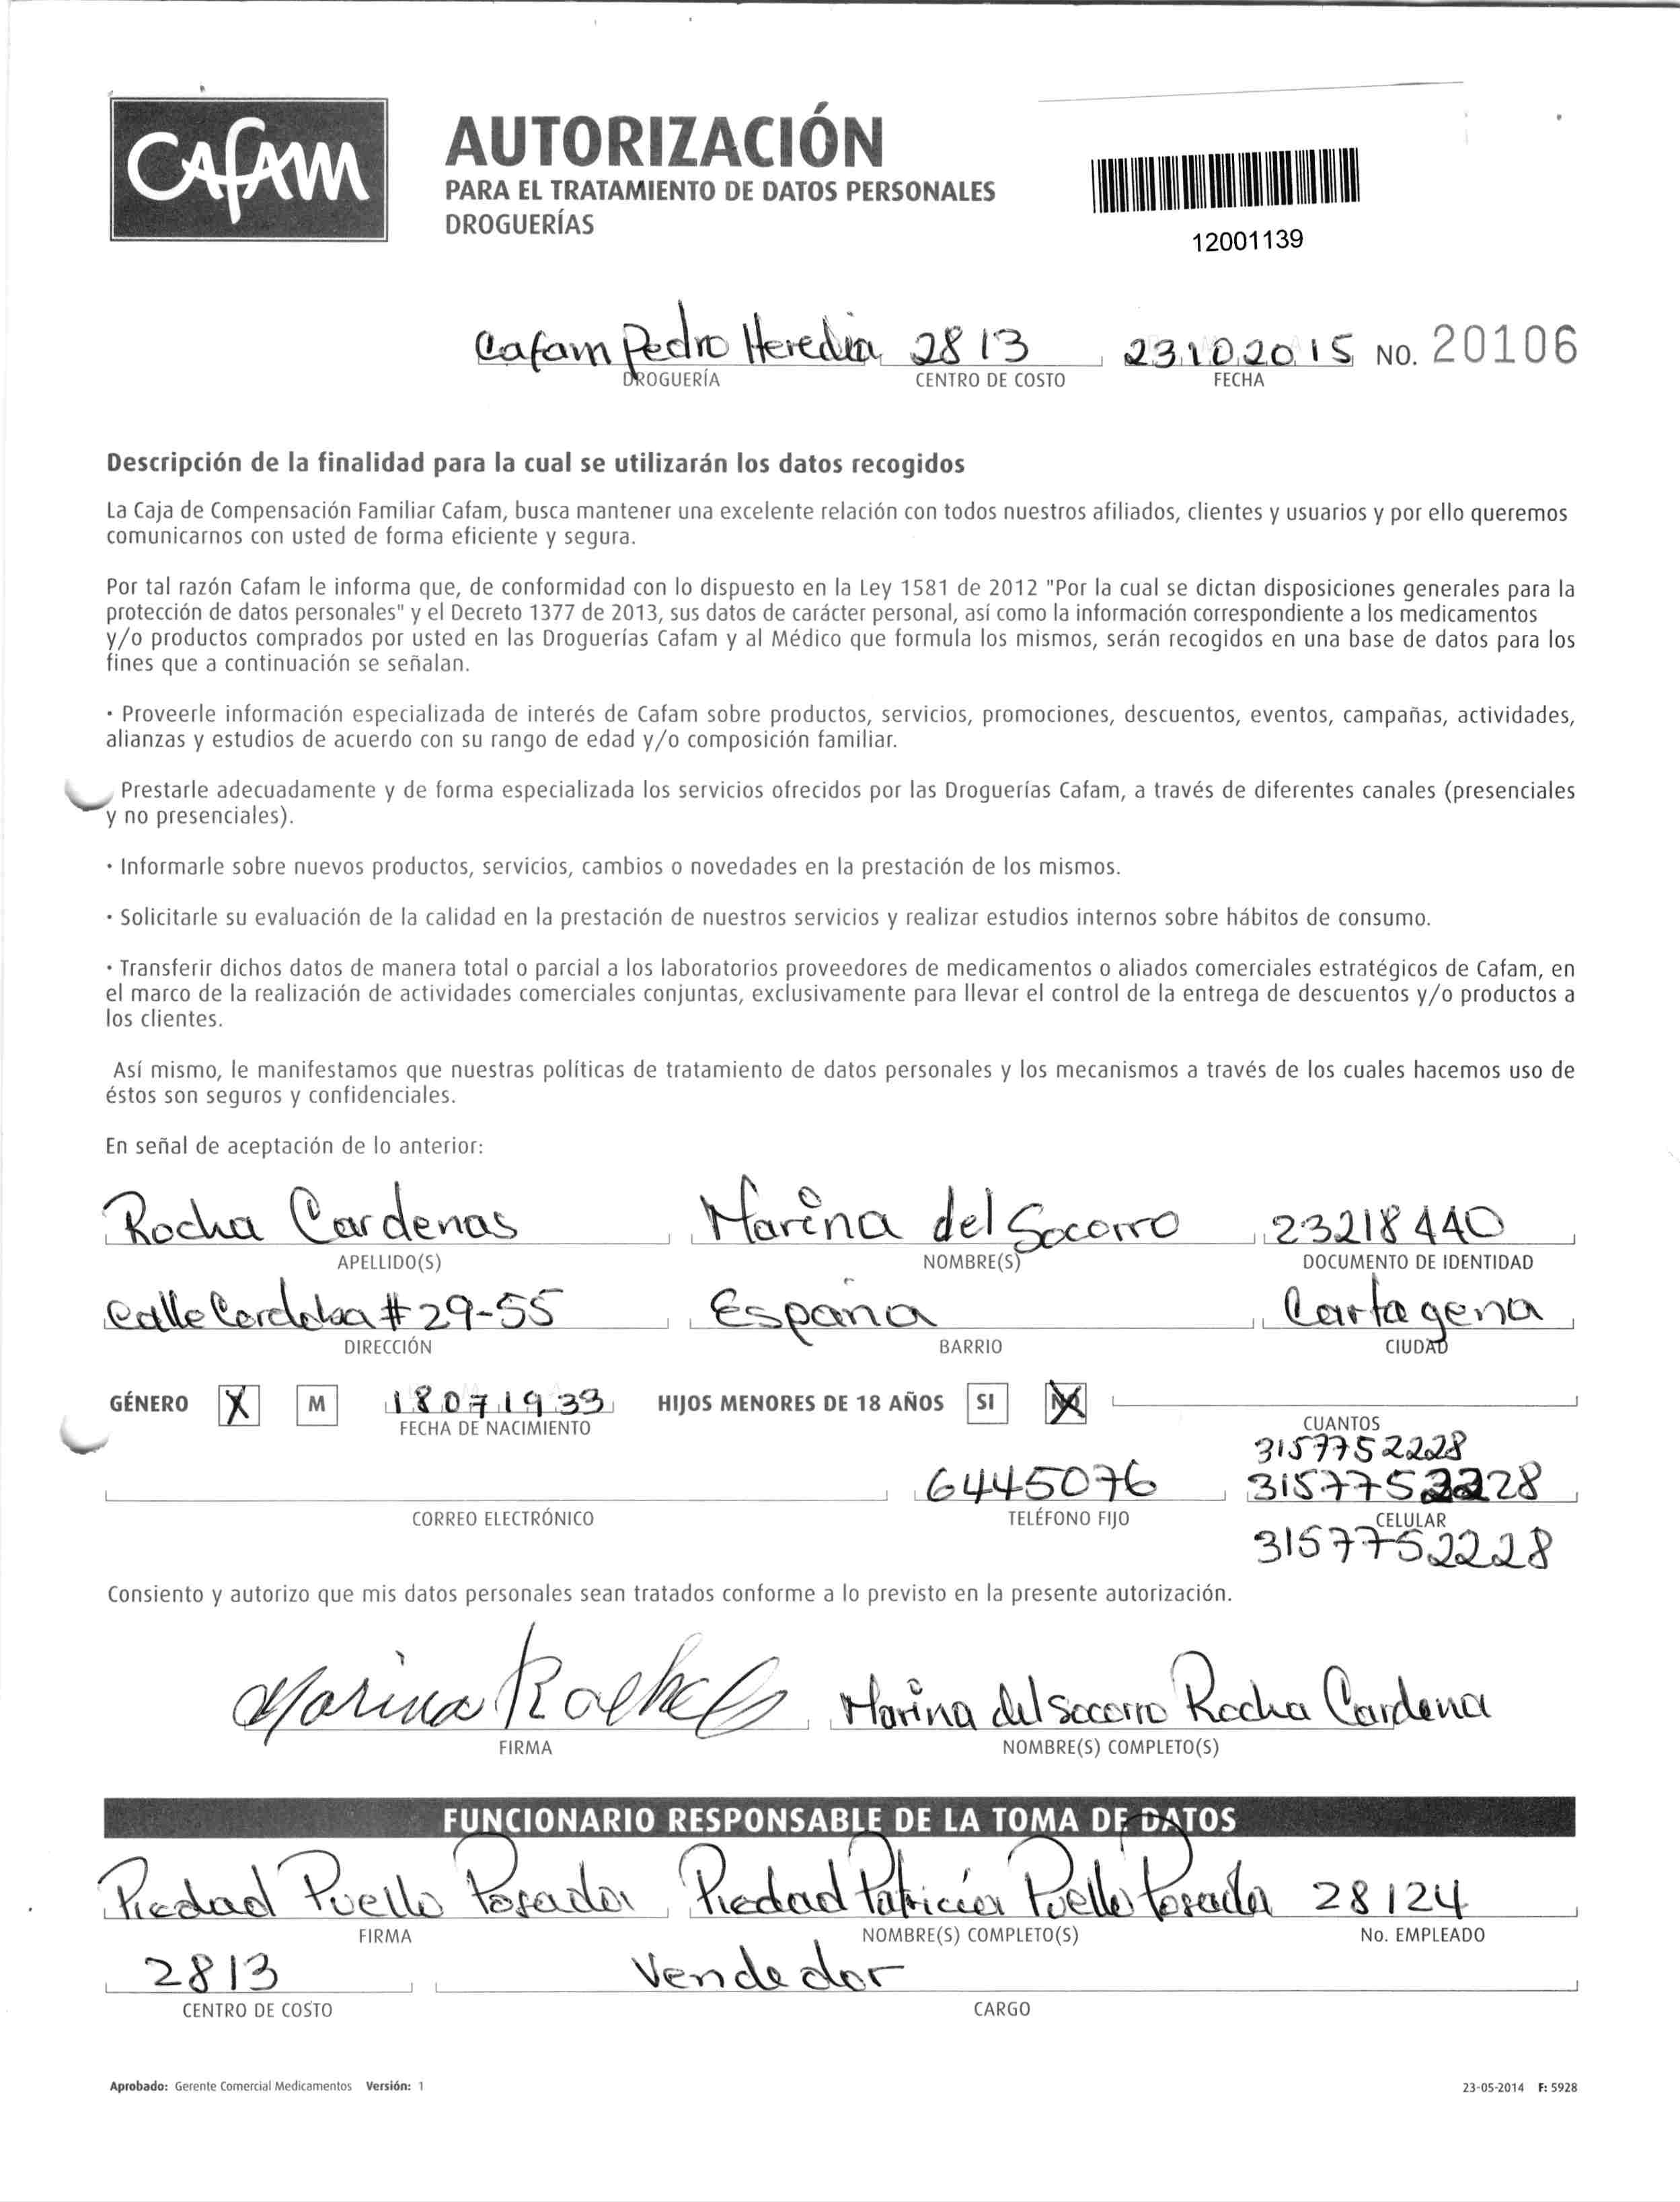 CAFAM
AUTORIZACIÓN
PARA EL TRATAMIENTO DE DATOS PERSONALES
DROGUERÍAS
12001139
Cafam Pedro Heredia 2813 23102015 NO. 20106
DROGUERÍA CENTRO DE COSTO FECHA
Descripción de la finalidad para la cual se utilizarán los datos recogidos
La Caja de Compensación Familiar Cafam, busca mantener una excelente relación con todos nuestros afiliados, clientes y usuarios y por ello queremos
comunicarnos con usted de forma eficiente y segura.
Por tal razón Cafam le informa que, de conformidad con lo dispuesto en la Ley 1581 de 2012 "Por la cual se dictan disposiciones generales para la
protección de datos personales" y el Decreto 1377 de 2013, sus datos de carácter personal, así como la información correspondiente a los medicamentos
y/o productos comprados por usted en las Droguerías Cafam y al Médico que formula los mismos, serán recogidos en una base de datos para los
fines que a continuación se señalan.
· Proveerle información especializada de interés de Cafam sobre productos, servicios, promociones, descuentos, eventos, campañas, actividades,
alianzas y estudios de acuerdo con su rango de edad y/o composición familiar.
Prestarle adecuadamente y de forma especializada los servicios ofrecidos por las Droguerías Cafam, a través de diferentes canales (presenciales
y no presenciales).
· Informarle sobre nuevos productos, servicios, cambios o novedades en la prestación de los mismos.
· Solicitarle su evaluación de la calidad en la prestación de nuestros servicios y realizar estudios internos sobre hábitos de consumo.
· Transferir dichos datos de manera total o parcial a los laboratorios proveedores de medicamentos o aliados comerciales estratégicos de Cafam, en
el marco de la realización de actividades comerciales conjuntas, exclusivamente para llevar el control de la entrega de descuentos y/o productos a
los clientes.
Así mismo, le manifestamos que nuestras políticas de tratamiento de datos personales y los mecanismos a través de los cuales hacemos uso de
éstos son seguros y confidenciales.
En señal de aceptación de lo anterior:
Rocha Cardenas Marina del Socorro 23218440
APELLIDO(S) NOMBRE(S) DOCUMENTO DE IDENTIDAD
Calle Cordoba # 29-55 España Cartagena
DIRECCIÓN BARRIO CIUDAD
GÉNERO X M 18071933 HIJOS MENORES DE 18 AÑOS SI NO X
FECHA DE NACIMIENTO CUANTOS
3157752228
6445076 3157752228
CORREO ELECTRÓNICO TELÉFONO FIJO CELULAR
3157752228
Consiento y autorizo que mis datos personales sean tratados conforme a lo previsto en la presente autorización.
Marina Rocha Marina del Socorro Rocha Cardena
FIRMA NOMBRE(S) COMPLETO(S)
FUNCIONARIO RESPONSABLE DE LA TOMA DE DATOS
Piedad Puello Posada Piedad Patricia Puello Posada 28124
FIRMA NOMBRE(S) COMPLETO(S) No. EMPLEADO
2813 Vendedor
CENTRO DE COSTO CARGO
Aprobado: Gerente Comercial Medicamentos Versión: 1 23-05-2014 F: 5928